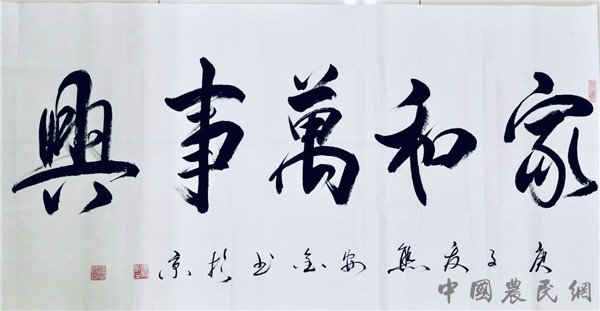 家和萬事興
庚子夏安金书於京
中國農民網